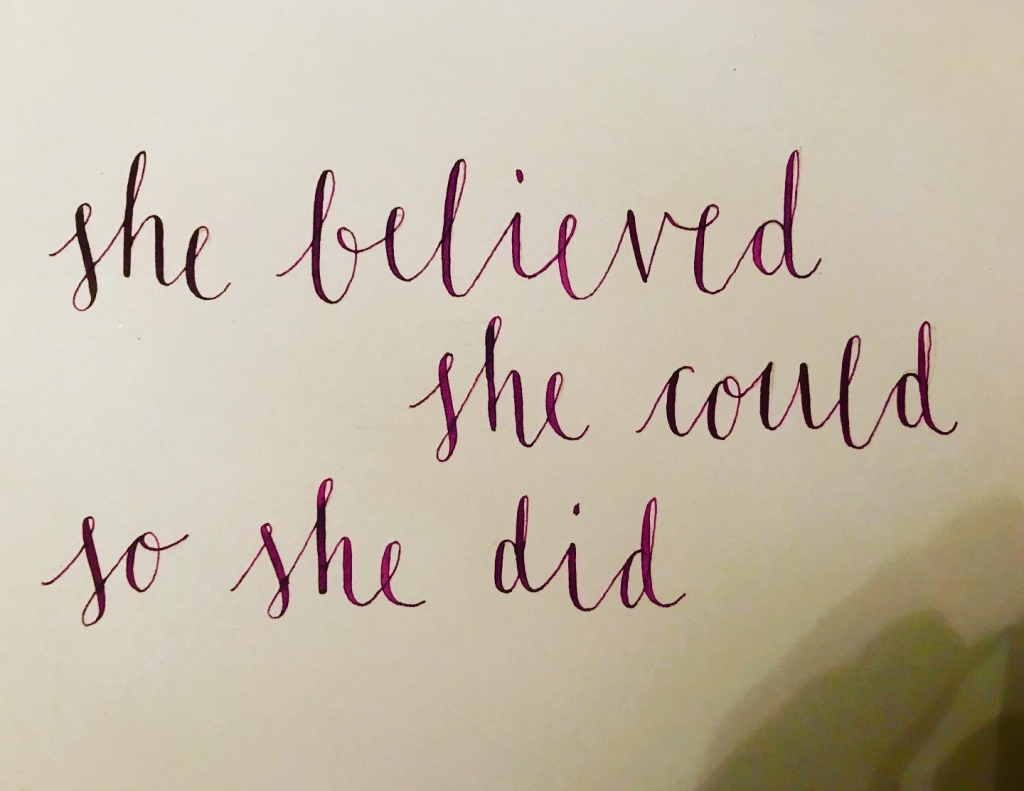 she believed
she could
so she did